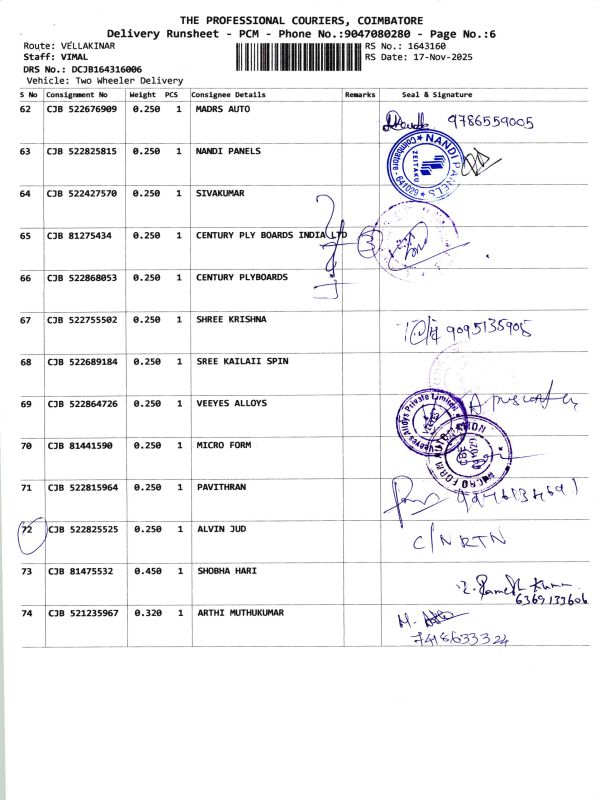 THE PROFESSIONAL COURIERS, COIMBATORE
Delivery Runsheet - PCM - Phone No.:9047080280 - Page No.:6
Route: VELLAKINAR
RS No.: 1643160
Staff: VIMAL
RS Date: 17-Nov-2025
DRS No.: DCJB164316006
Vehicle: Two Wheeler Delivery
S No Consignment No Weight PCS Consignee Details Remarks Seal & Signature
62 CJB 522676909 0.250 1 MADRS AUTO
9786559005
63 CJB 522825815 0.250 1 NANDI PANELS
NANDI PANELS
Coimbatore - 641029
64 CJB 522427570 0.250 1 SIVAKUMAR
65 CJB 81275434 0.250 1 CENTURY PLY BOARDS INDIA LTD 3
66 CJB 522868053 0.250 1 CENTURY PLYBOARDS
67 CJB 522755502 0.250 1 SHREE KRISHNA
9095135905
68 CJB 522689184 0.250 1 SREE KAILAII SPIN
69 CJB 522864726 0.250 1 VEEYES ALLOYS
Veeyes Alloys Private Limited
70 CJB 81441590 0.250 1 MICRO FORM
MICRO FORM AUTOMATION
71 CJB 522815964 0.250 1 PAVITHRAN
72 CJB 522825525 0.250 1 ALVIN JUD
C/N RTN
73 CJB 81475532 0.450 1 SHOBHA HARI
6369133606
74 CJB 521235967 0.320 1 ARTHI MUTHUKUMAR
7418633324